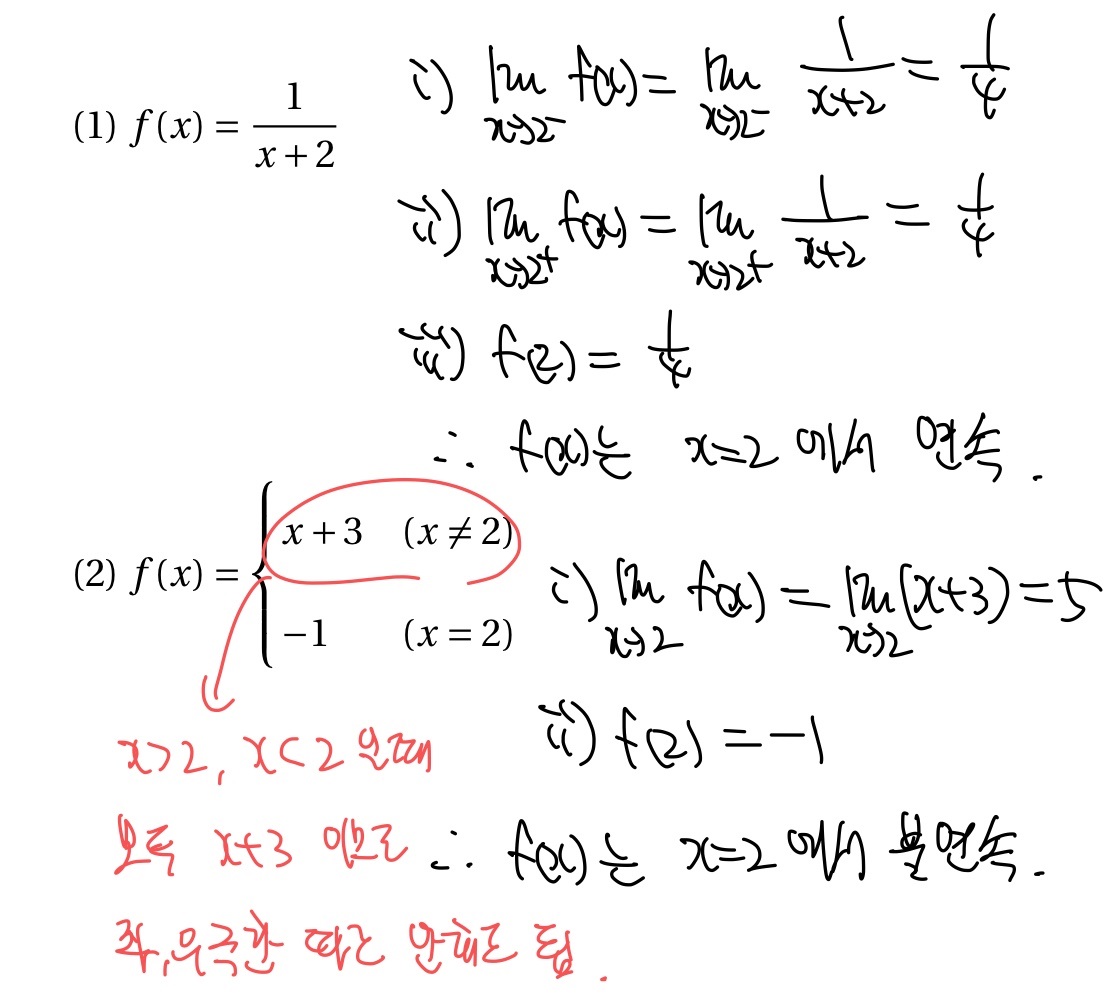 (1) f(x) = 1/(x+2)
i) lim_{x→2-} f(x) = lim_{x→2-} 1/(x+2) = 1/4
ii) lim_{x→2+} f(x) = lim_{x→2+} 1/(x+2) = 1/4
iii) f(2) = 1/4
∴ f(x)는 x=2 에서 연속.
(2) f(x) = { x+3 (x≠2)
-1 (x=2)
i) lim_{x→2} f(x) = lim_{x→2} (x+3) = 5
ii) f(2) = -1
∴ f(x)는 x=2 에서 불연속.
x>2, x<2 일때
모두 x+3 이므로
좌,우극한 따로 안해도 됨.